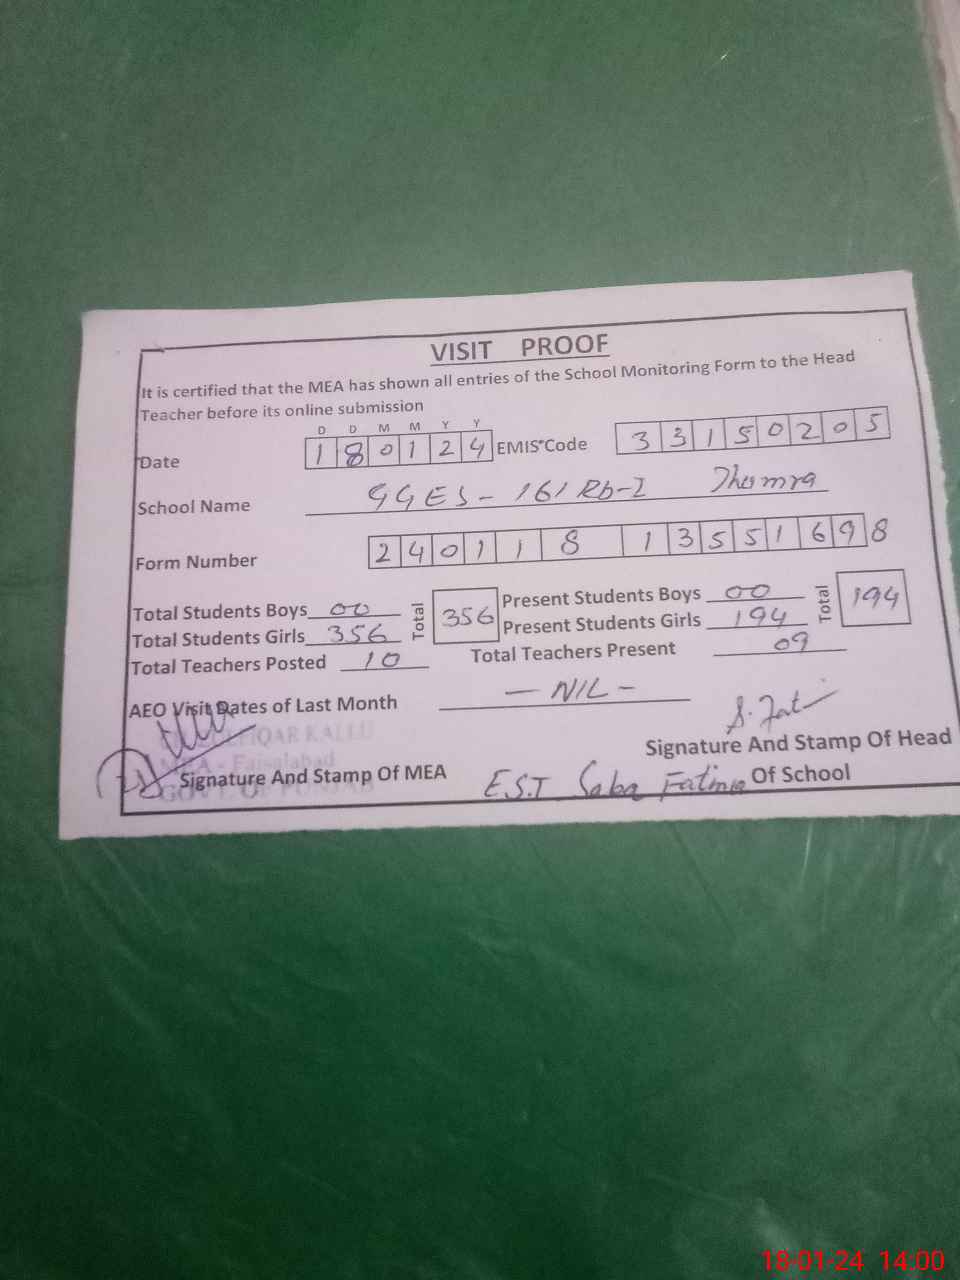 VISIT PROOF
It is certified that the MEA has shown all entries of the School Monitoring Form to the Head
Teacher before its online submission
D D M M Y Y
Date 180124 EMIS Code 33150205
School Name GGES - 161 Rb-I
Form Number 240118 13551698
Total Students Boys 00 Total 356 Present Students Boys 00 Total 194
Total Students Girls 356 Present Students Girls 194
Total Teachers Posted 10 Total Teachers Present 09
AEO Visit Dates of Last Month - NIL -
QAR KALLU
MEA - Faisalabad
GOVT. OF PUNJAB
Signature And Stamp Of MEA
S. Fati
Signature And Stamp Of Head
Of School
E.S.T Saba Fatima
18-01-24 14:00